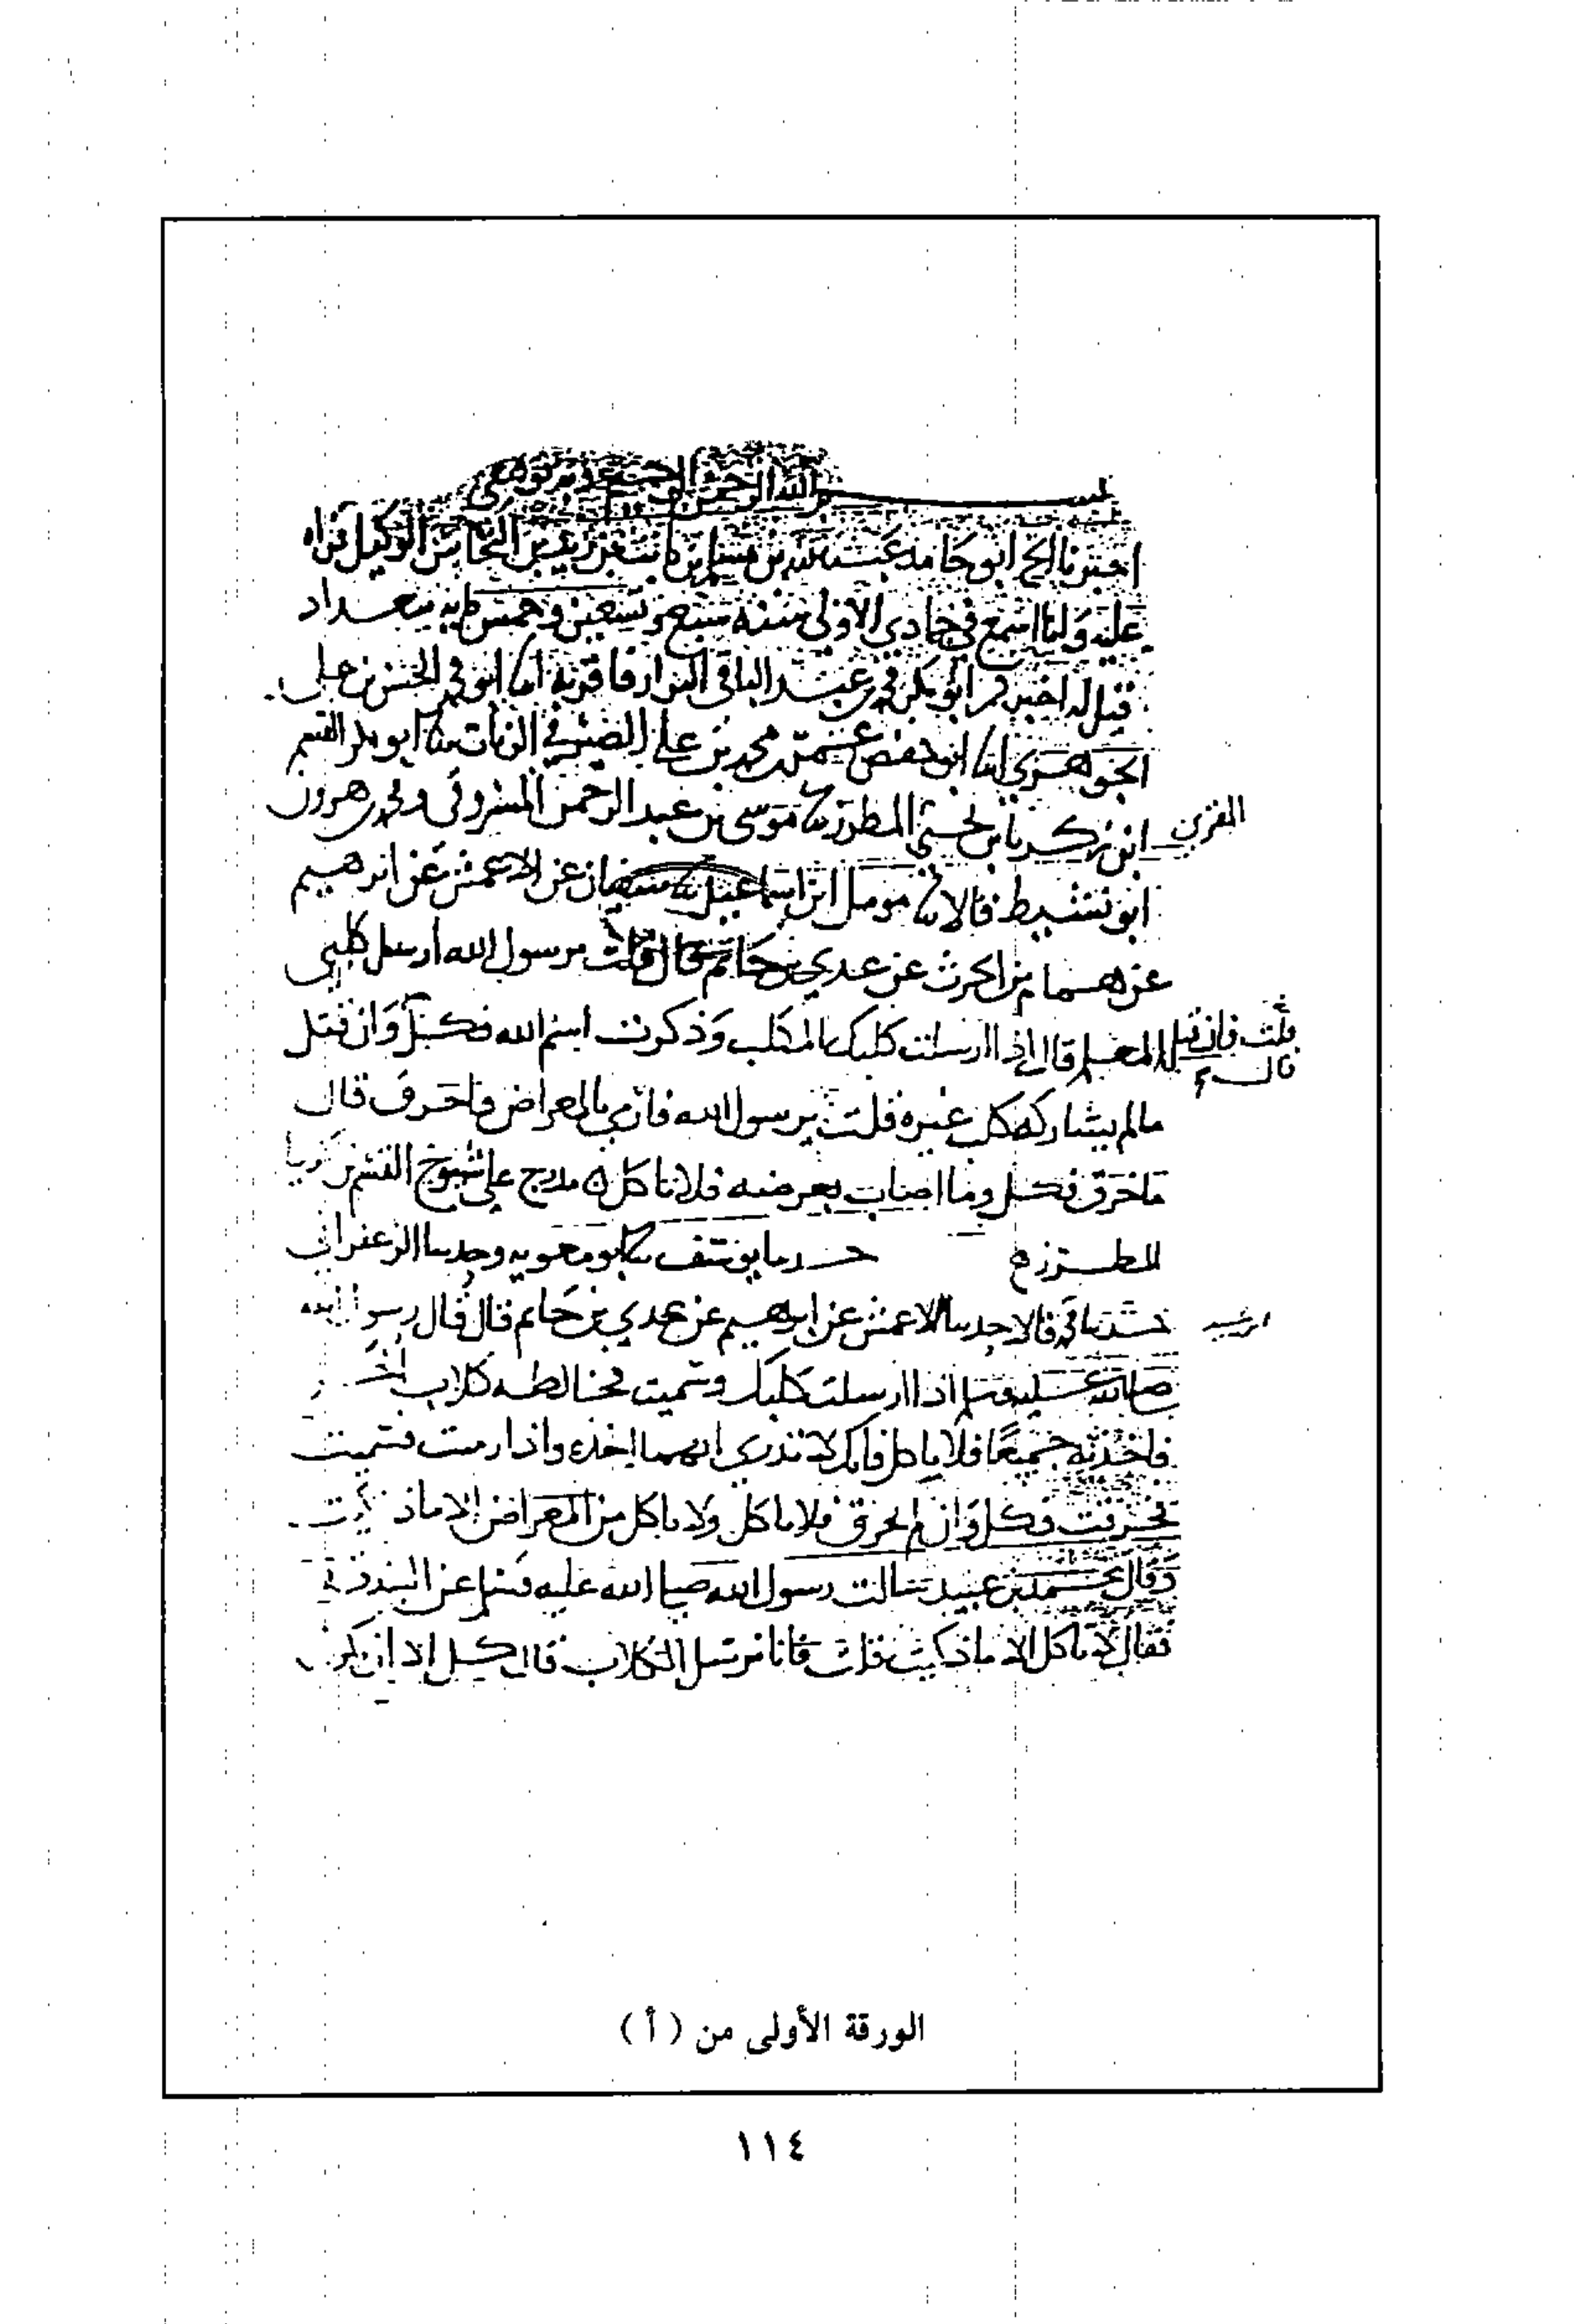 بسم الله الرحمن الرحيم
اخبرنا الشيخ ابو حامد عبد الله بن مسلم بن ثابت بن زيد بن النحاس الوكيل قراه
عليه وانا اسمع في جمادى الاولى سنة سبع وتسعين وخمس مايه ببغداد
قيل له اخبركم ابو بكر محمد بن عبد الباقي البزاز فاقر به انا ابو محمد الحسن بن علي
الجوهري انا ابو حفص عمر بن محمد بن علي الصيرفي الزيات نا ابو بكر القسم
ابن زكريا بن يحيى المطرز نا موسى بن عبد الرحمن المسروقي ومحمد بن هرون
المقري
ابو نشيط قالا نا مومل ابن اسماعيل نا سفيان عن الاعمش عن ابرهيم
عن همام بن الحرث عن عدي بن حاتم قال قلت يرسول الله ارسل كلبي
المعلم قال اذا ارسلت كلبك المكلب وذكرت اسم الله فكل وان قتل
قلت فان قتل
قال
مالم يشاركه كلب غيره قلت يرسول الله فارمي بالمعراض فاخرق قال
ما خرق فكل وما اصاب بعرضه فلا تاكل مدرج على شيوخ القسم بن زكريا
المطرز ح حدثنا يوسف نا ابو معويه وحدثنا الزعفراني
حدثنا محمد قالا حدثنا الاعمش عن ابرهيم عن عدي بن حاتم قال قال رسول الله
صلى الله عليه وسلم اذا ارسلت كلبك وسميت فخالطه كلاب اخر
فاخذته جميعا فلا تاكل فانك لا تدري ايهما اخذه واذا رميت فسميت
فخرقت فكل وان لم تخرق فلا تاكل ولا تاكل من المعراض الا ما ذكيت
وقال محمد بن عبيد سالت رسول الله صلى الله عليه وسلم عن البندقة
فقال لا تاكل الا ما ذكيت قلت فانا نرسل الكلاب قال كل الا ان
الورقة الأولى من ( أ )
١١٤